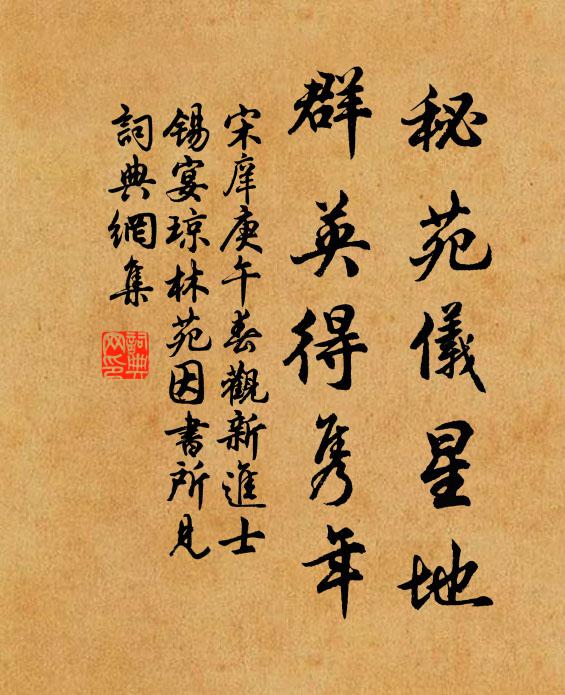 秘苑儀星地
群英得雋年
宋庠庚午春觀新進士
錫宴琼林苑因書所見
詞典網集
詞典网印